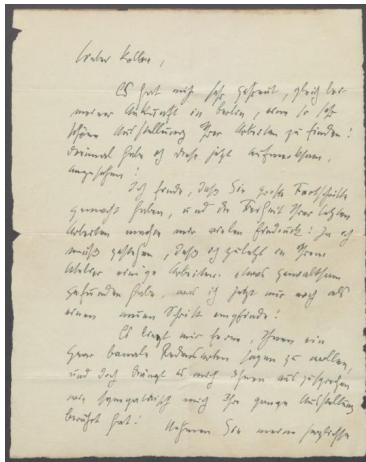 Lieber Kolbe,
Es hat mich sehr gefreut, gleich bei
meiner Ankunft in Berlin, eine so sehr
schöne Ausstellung Ihrer Arbeiten zu finden!
Dreimal habe ich diese jetzt aufmerksam
angesehen!
Ich finde, daß Sie große Fortschritte
gemacht haben, und die Freiheit Ihrer letzten
Arbeiten machte mir vielen Eindruck! Ja ich
muß gestehen, daß ich zuletzt in Ihrem
Atelier einige Arbeiten etwas gewaltsam
gefunden habe, was ich jetzt nur noch als
einen neuen Schritt empfinde!
Es liegt mir fern, Ihnen ein
paar banale Redensarten sagen zu wollen,
und doch drängt es mich Ihnen auszusprechen
wie sympathisch mich Ihre ganze Ausstellung
berührt hat! Nehmen Sie meine herzlichsten